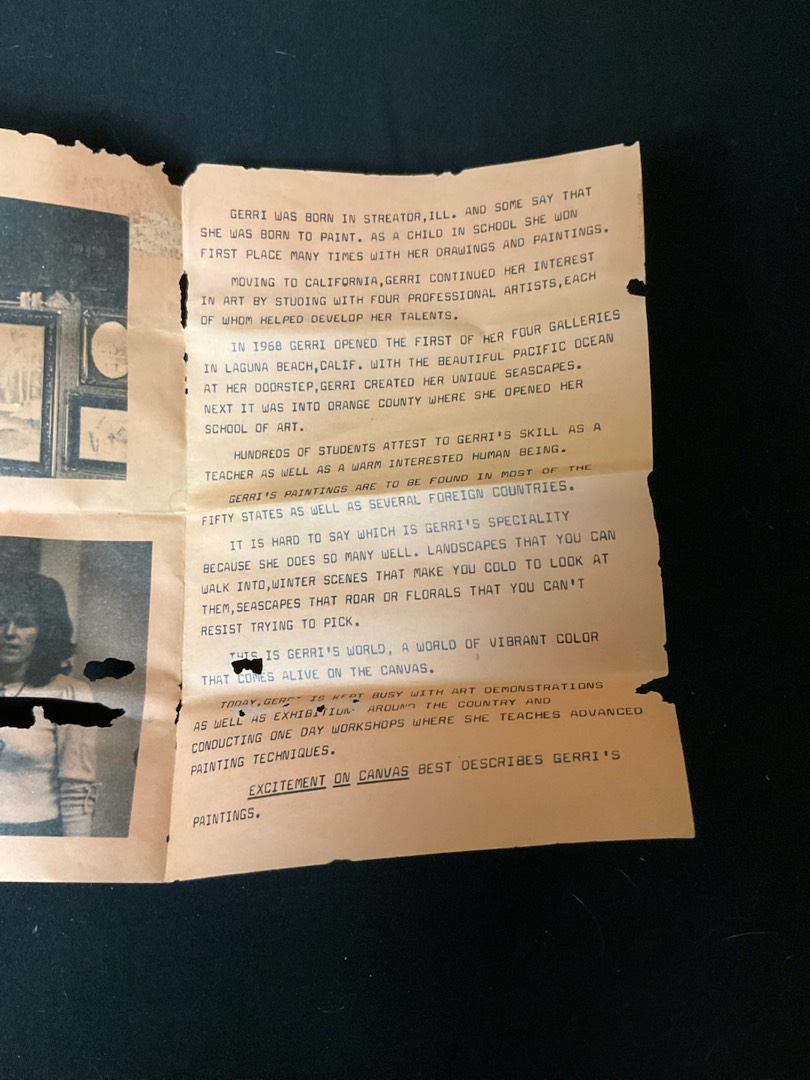 GERRI WAS BORN IN STREATOR,ILL. AND SOME SAY THAT
SHE WAS BORN TO PAINT. AS A CHILD IN SCHOOL SHE WON
FIRST PLACE MANY TIMES WITH HER DRAWINGS AND PAINTINGS.
MOVING TO CALIFORNIA,GERRI CONTINUED HER INTEREST
IN ART BY STUDING WITH FOUR PROFESSIONAL ARTISTS,EACH
OF WHOM HELPED DEVELOP HER TALENTS.
IN 1968 GERRI OPENED THE FIRST OF HER FOUR GALLERIES
IN LAGUNA BEACH,CALIF. WITH THE BEAUTIFUL PACIFIC OCEAN
AT HER DOORSTEP,GERRI CREATED HER UNIQUE SEASCAPES.
NEXT IT WAS INTO ORANGE COUNTY WHERE SHE OPENED HER
SCHOOL OF ART.
HUNDREDS OF STUDENTS ATTEST TO GERRI'S SKILL AS A
TEACHER AS WELL AS A WARM INTERESTED HUMAN BEING.
GERRI'S PAINTINGS ARE TO BE FOUND IN MOST OF THE
FIFTY STATES AS WELL AS SEVERAL FOREIGN COUNTRIES.
IT IS HARD TO SAY WHICH IS GERRI'S SPECIALITY
BECAUSE SHE DOES SO MANY WELL. LANDSCAPES THAT YOU CAN
WALK INTO,WINTER SCENES THAT MAKE YOU COLD TO LOOK AT
THEM,SEASCAPES THAT ROAR OR FLORALS THAT YOU CAN'T
RESIST TRYING TO PICK.
THIS IS GERRI'S WORLD, A WORLD OF VIBRANT COLOR
THAT COMES ALIVE ON THE CANVAS.
TODAY,GERRI IS KEPT BUSY WITH ART DEMONSTRATIONS
AS WELL AS EXHIBITION AROUND THE COUNTRY AND
CONDUCTING ONE DAY WORKSHOPS WHERE SHE TEACHES ADVANCED
PAINTING TECHNIQUES.
EXCITEMENT ON CANVAS BEST DESCRIBES GERRI'S
PAINTINGS.